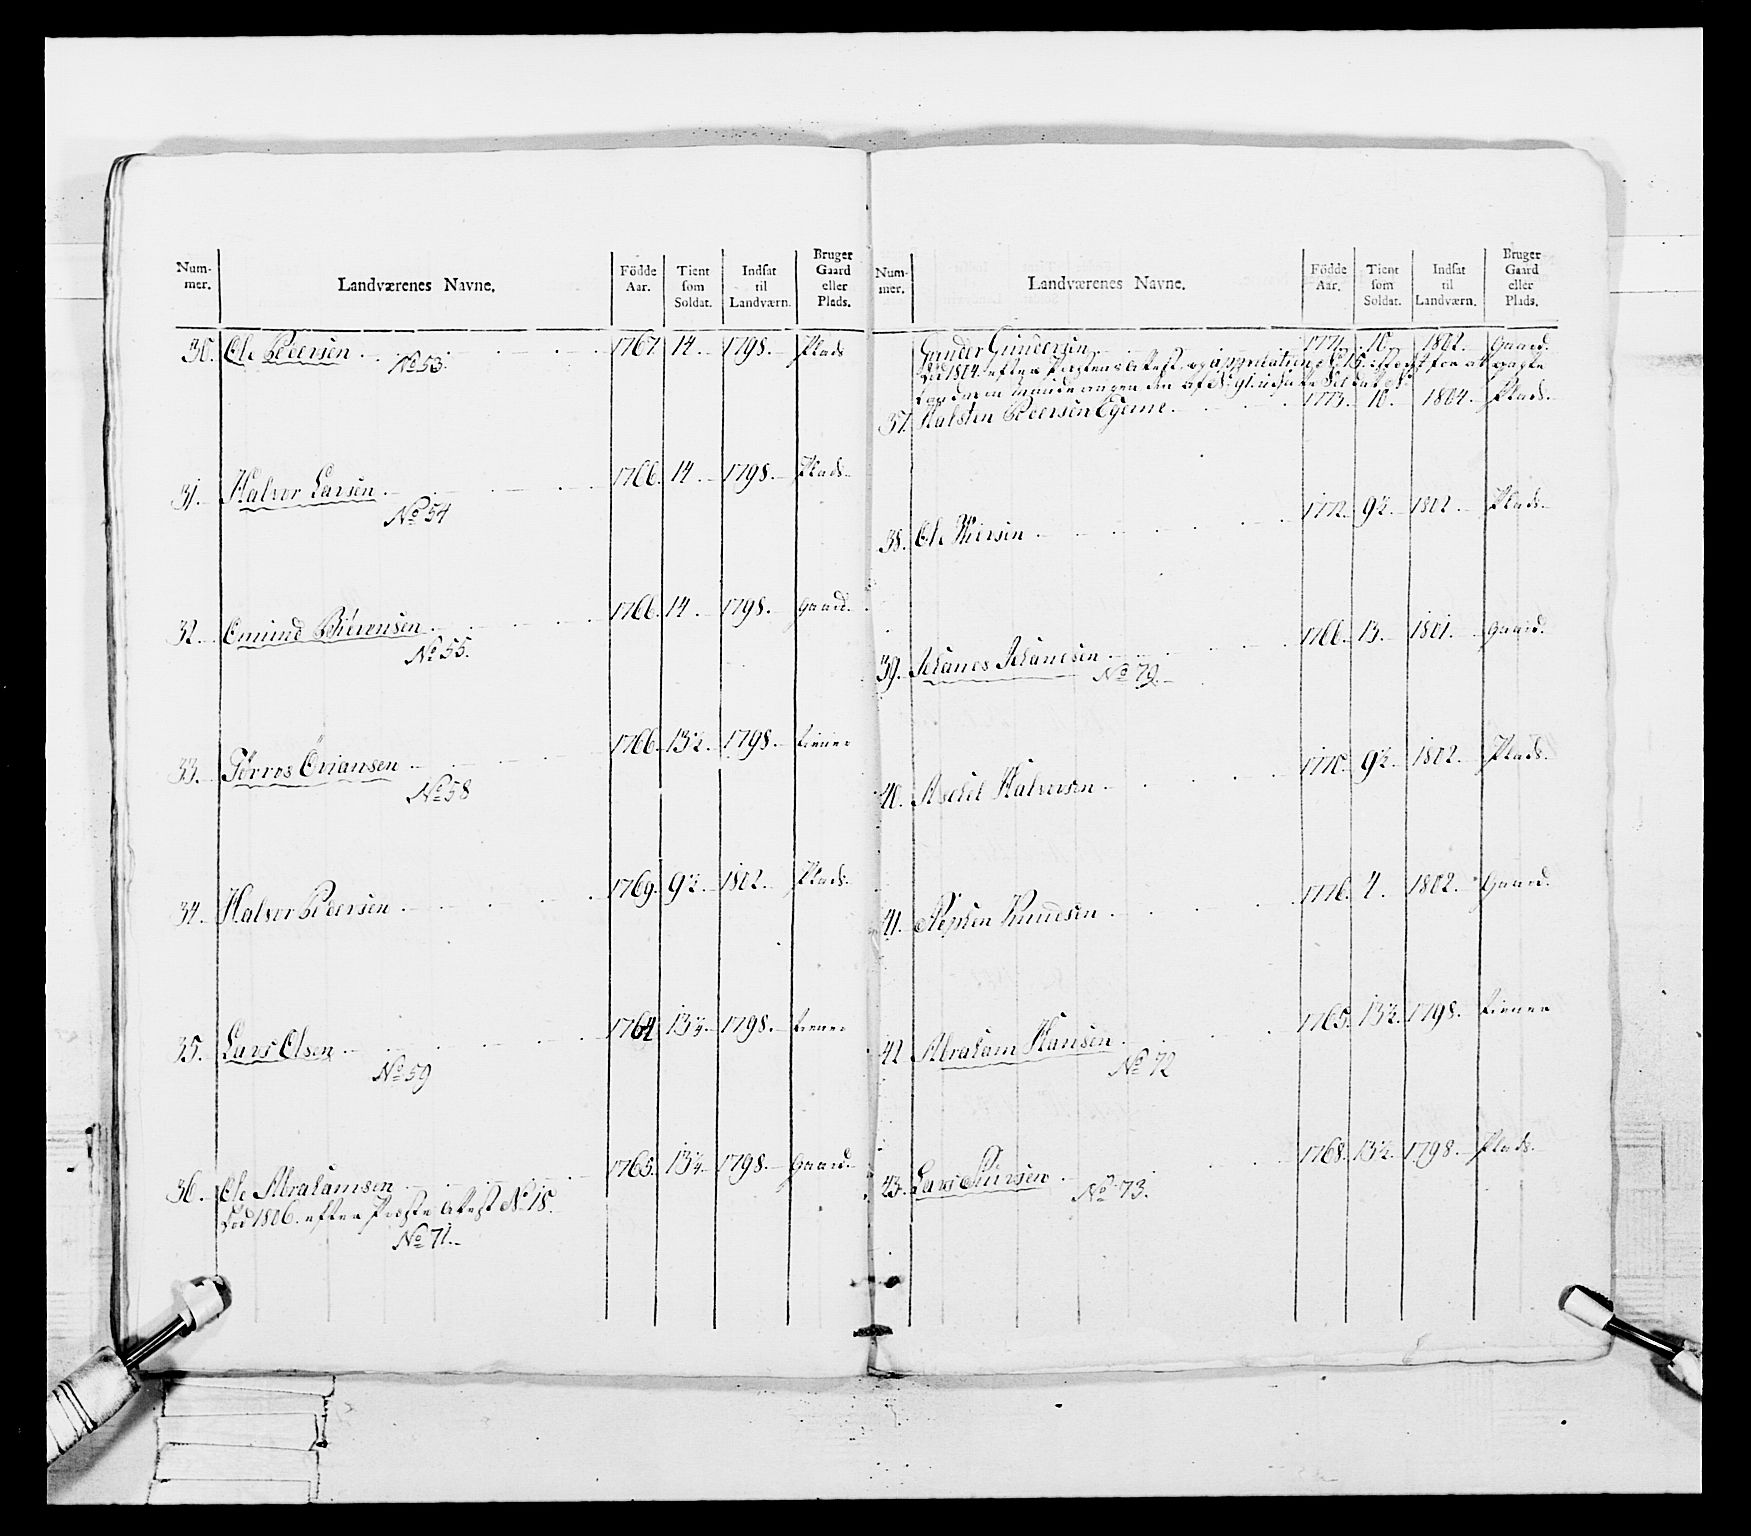 Num-
mer.
Landværenes Navne.
Födde
Aar.
Tient
som
Soldat.
Indsat
til
Landværn.
Bruger
Gaard
eller
Plads.
30. Ole Pedersen 1767. 14. 1798. Plads
No 53.
31. Halvor Larsen 1766. 14. 1798. Plads.
No 54
32. Emund 1766. 14. 1798. Gaard.
No 55.
33. 1766. 13½. 1798. tiener
No 58
34. Halvor Pedersen 1769. 9½. 1802. Plads.
35. Lars Olsen 1764 13½. 1798. tiener
No 59
36. Ole Abrahamsen 1765. 13½. 1798. Gaard.
död 1806. efter Præste Attest No 18.
No 71.
Num-
mer.
Landværenes Navne.
Födde
Aar.
Tient
som
Soldat.
Indsat
til
Landværn.
Bruger
Gaard
eller
Plads.
Gunder Gundersen 10. 1802. Gaard.
död 1804. efter Attest og
37. Halsten Pedersen 1773. 10. 1804. Plads.
38. Ole 1772. 9½. 1802. Plads.
39. Johanes Johanesen 1766. 13. 1801. Gaard.
No 79.
40. Halvorsen 1770. 9½. 1802. Plads.
41. Knudsen 1776. 4. 1802. Gaard.
42. Abraham Hansen 1765. 13½. 1798. tiener
No 72
43. Lars 1768. 13½. 1798. Plads.
No 73.